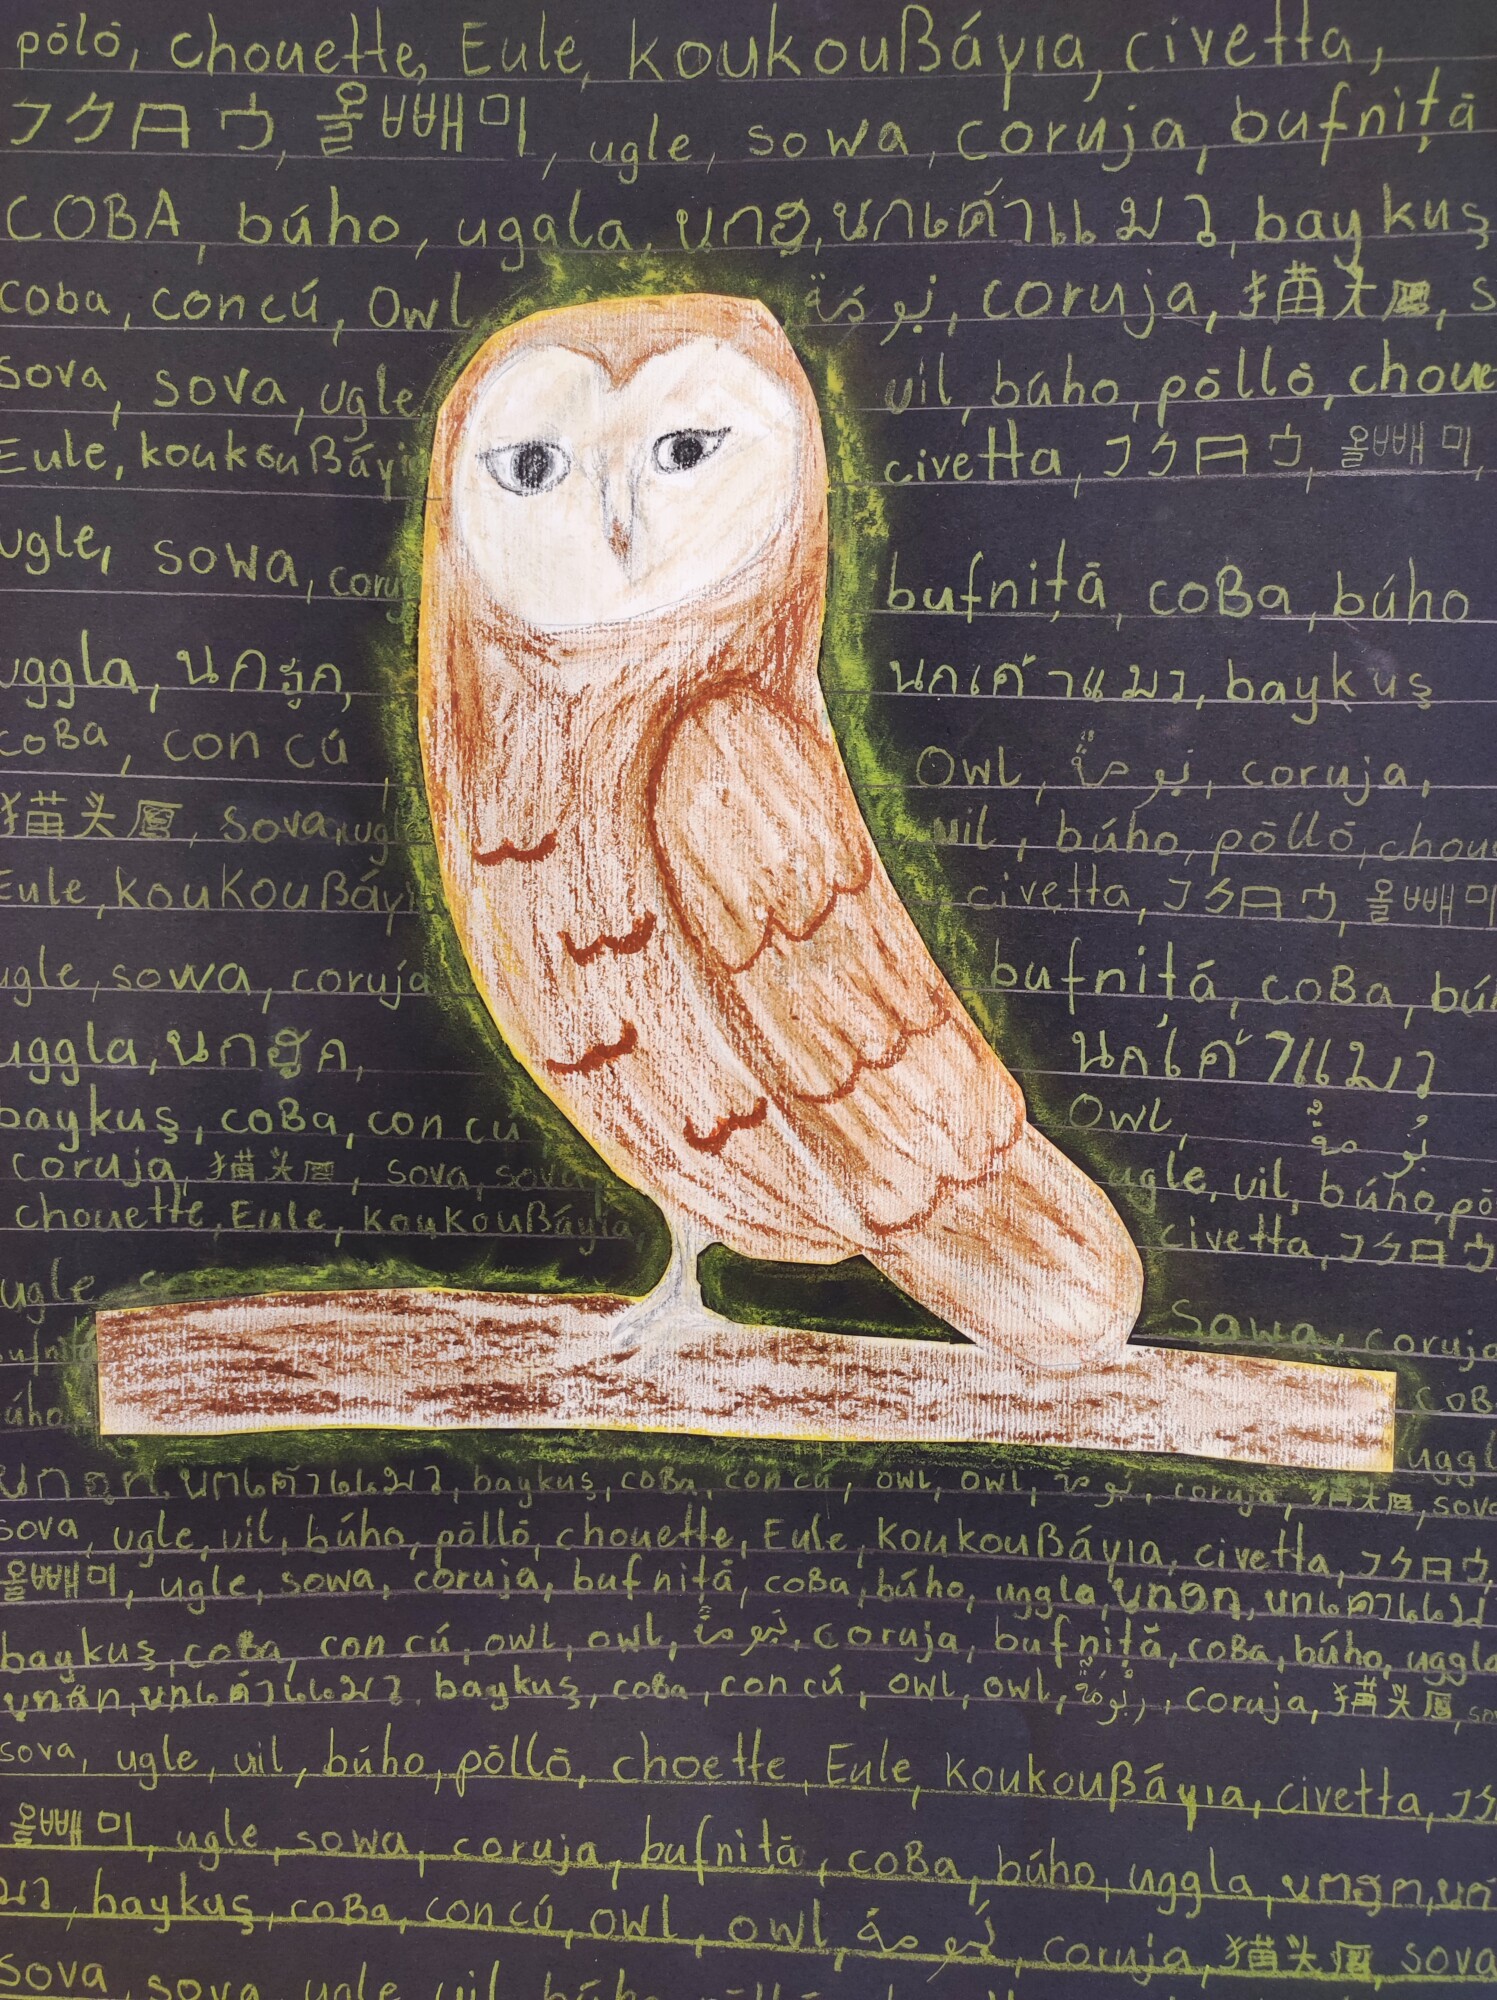 pōlō, chouette, Eule, koukouβáyıa, civetta,
フクロウ, 올빼미, ugle, sowa, coruja, bufniţā
COBA, búho, uggla, นกฮูก, นกเค้าแมว, baykuş
coba, con cú, Owl بُومَة, coruja, 猫头鹰, s
sova, sova, ugle uil, búho, pōllō, choue
Eule, koukouβáyı civetta, フクロウ, 올빼미,
ugle, sowa, coruj bufniţā, coBa, búho
uggla, นกฮูก, นกเค้าแมว, baykuş
coBa, con cú Owl, بُومَة, coruja,
猫头鹰, sova, ugl uil, búho, pōllō, chou
Eule, kouKouβáyı civetta, フクロウ, 올빼미
ugle, sowa, coruja bufniţá, coBa, búh
uggla, นกฮูก, นกเค้าแมว
baykuş, coBa, con cu Owl, بُومَة
coruja, 猫头鹰, sova, sova ugle, uil, búho, pō
chouette, Eule, KouKouβáyıa civetta, フクロウ
ugle s sowa, coruja
bufniţā coBa
úho uggl
นกฮูก, นกเค้าแมว, baykuş, coBa, con cú, owl, owl, بُومَة, coruja, 猫头鹰, sova
sova, ugle, uil, búho, pōllō, chouette, Eule, KouKouβáyıa, civetta, フクロウ,
올빼미, ugle, sowa, coruja, bufniţā, coBa, búho, uggla, นกฮูก, นกเค้าแม
baykuş, coBa, con cú, owl, owl, بُومَة, coruja, bufniţā, coBa, búho, uggla
นกฮูก, นกเค้าแมว, baykuş, coBa, con cú, owl, owl, بُومَة, coruja, 猫头鹰, sov
sova, ugle, uil, búho, pōllō, choette, Eule, KouKouβáyıa, civetta, フク
올빼미, ugle, sowa, coruja, bufniţā, coBa, búho, uggla, นกฮูก, นก
มว, baykuş, coBa, con cú, owl, owl, بُومَة, coruja, 猫头鹰, sova
Sova, sova, ugle, uil, búho, pōllō,